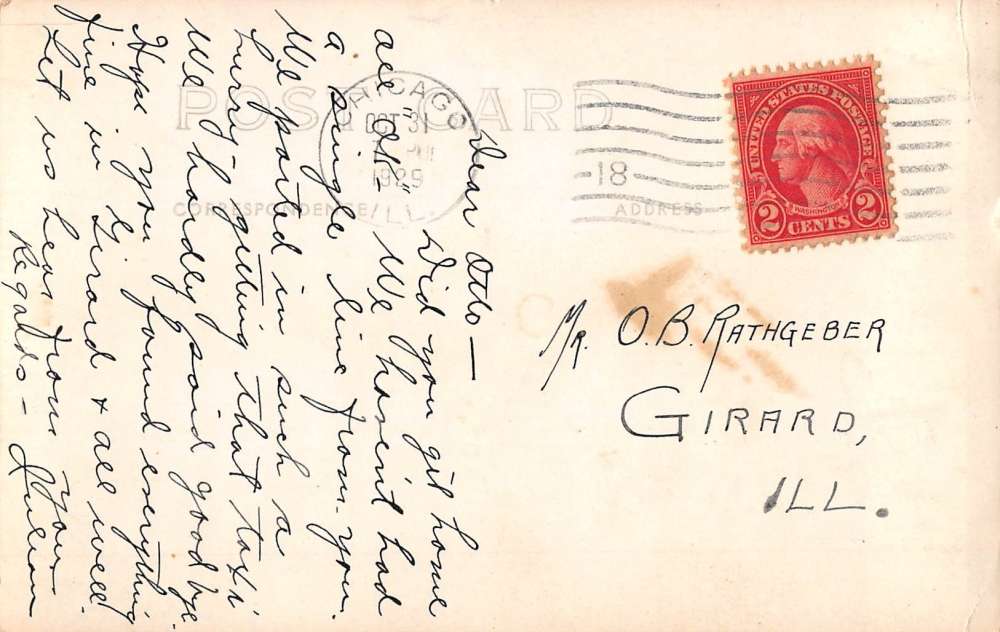 POST CARD
CORRESPONDENCE
ADDRESS
CHICAGO
OCT 31
1929
ILL.
18
UNITED STATES POSTAGE
WASHINGTON
2 CENTS 2
Mr. O. B. RATHGEBER
GIRARD,
ILL.
Dear Otto —
Did you git home
all "OK". We haven't had
a single line from you.
We parted in such a
hurry - gitting that taxi
We hardley said good bye.
Hope you found everything
fine in Girard & all well.
Let us hear from you.
Regards -